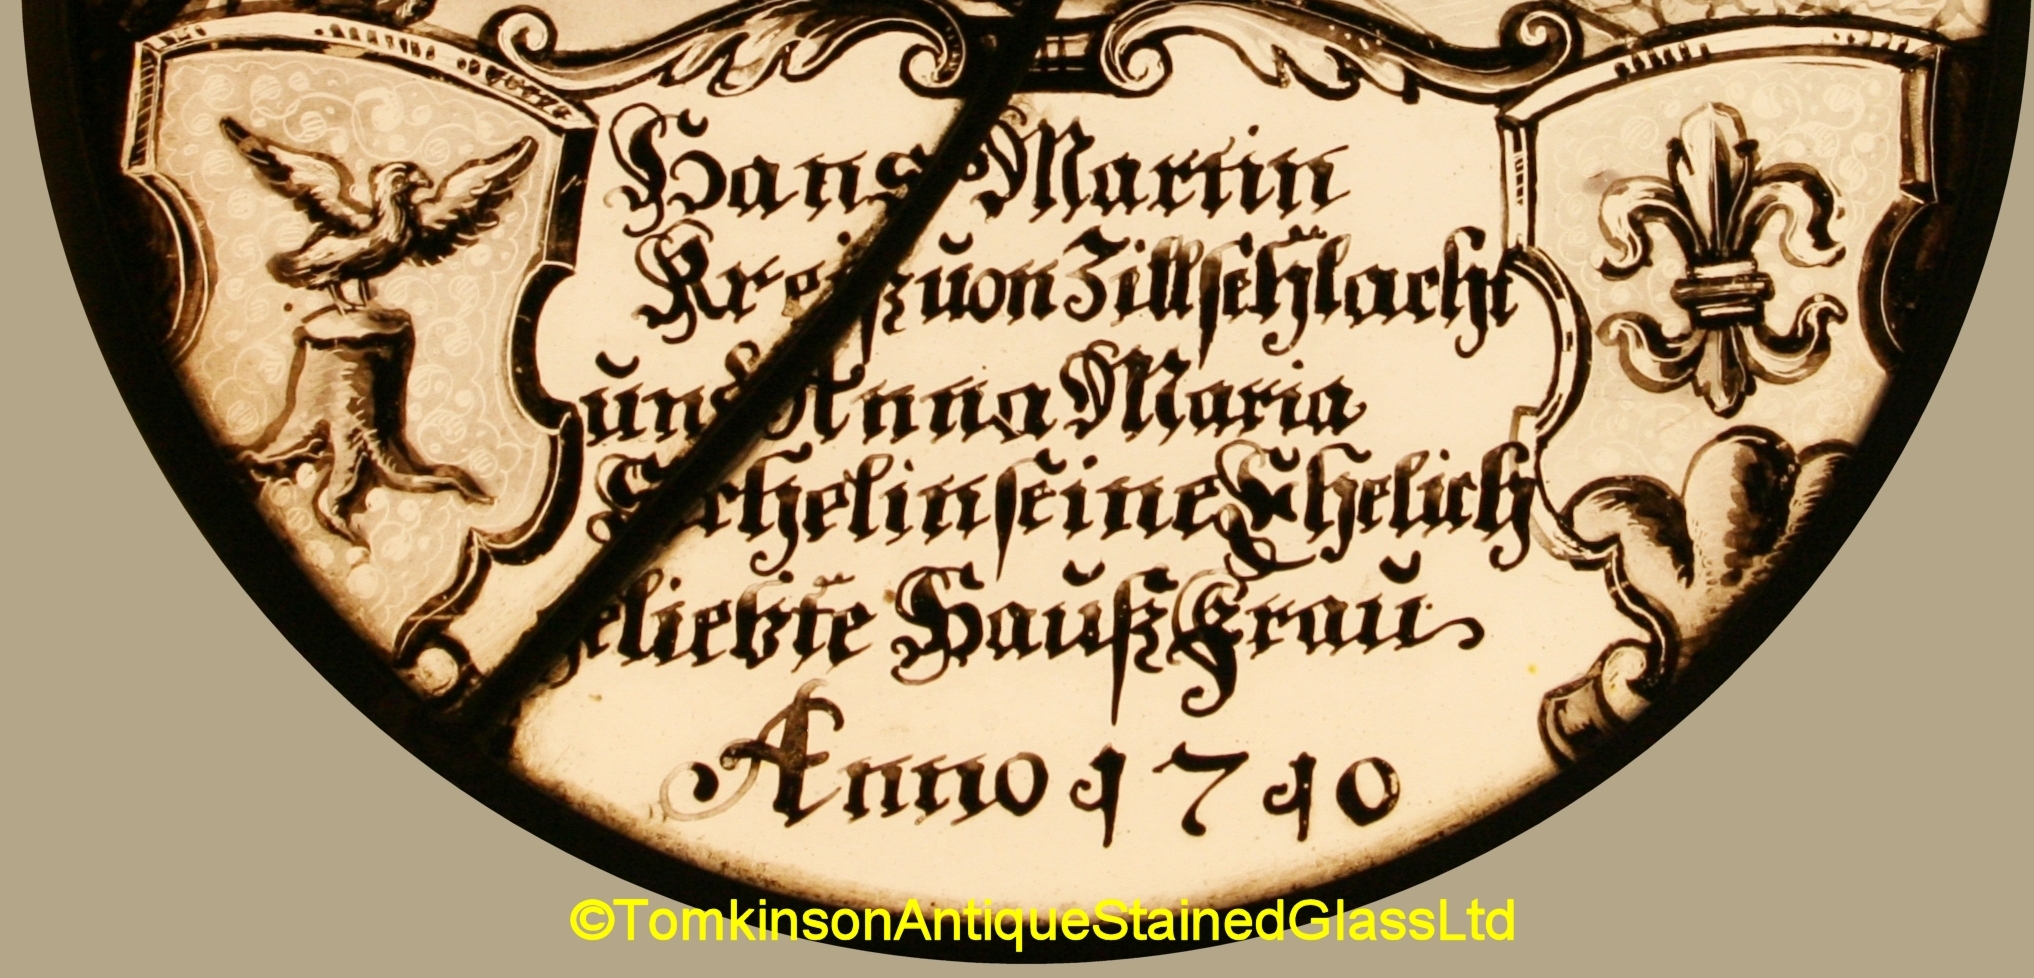 Hans Martin
Kreiß ŭon Zillschlacht
ŭnd Anna Maria
seine Ehelich
geliebte Haŭß Fraŭ
Anno 1710
©TomkinsonAntiqueStainedGlassLtd